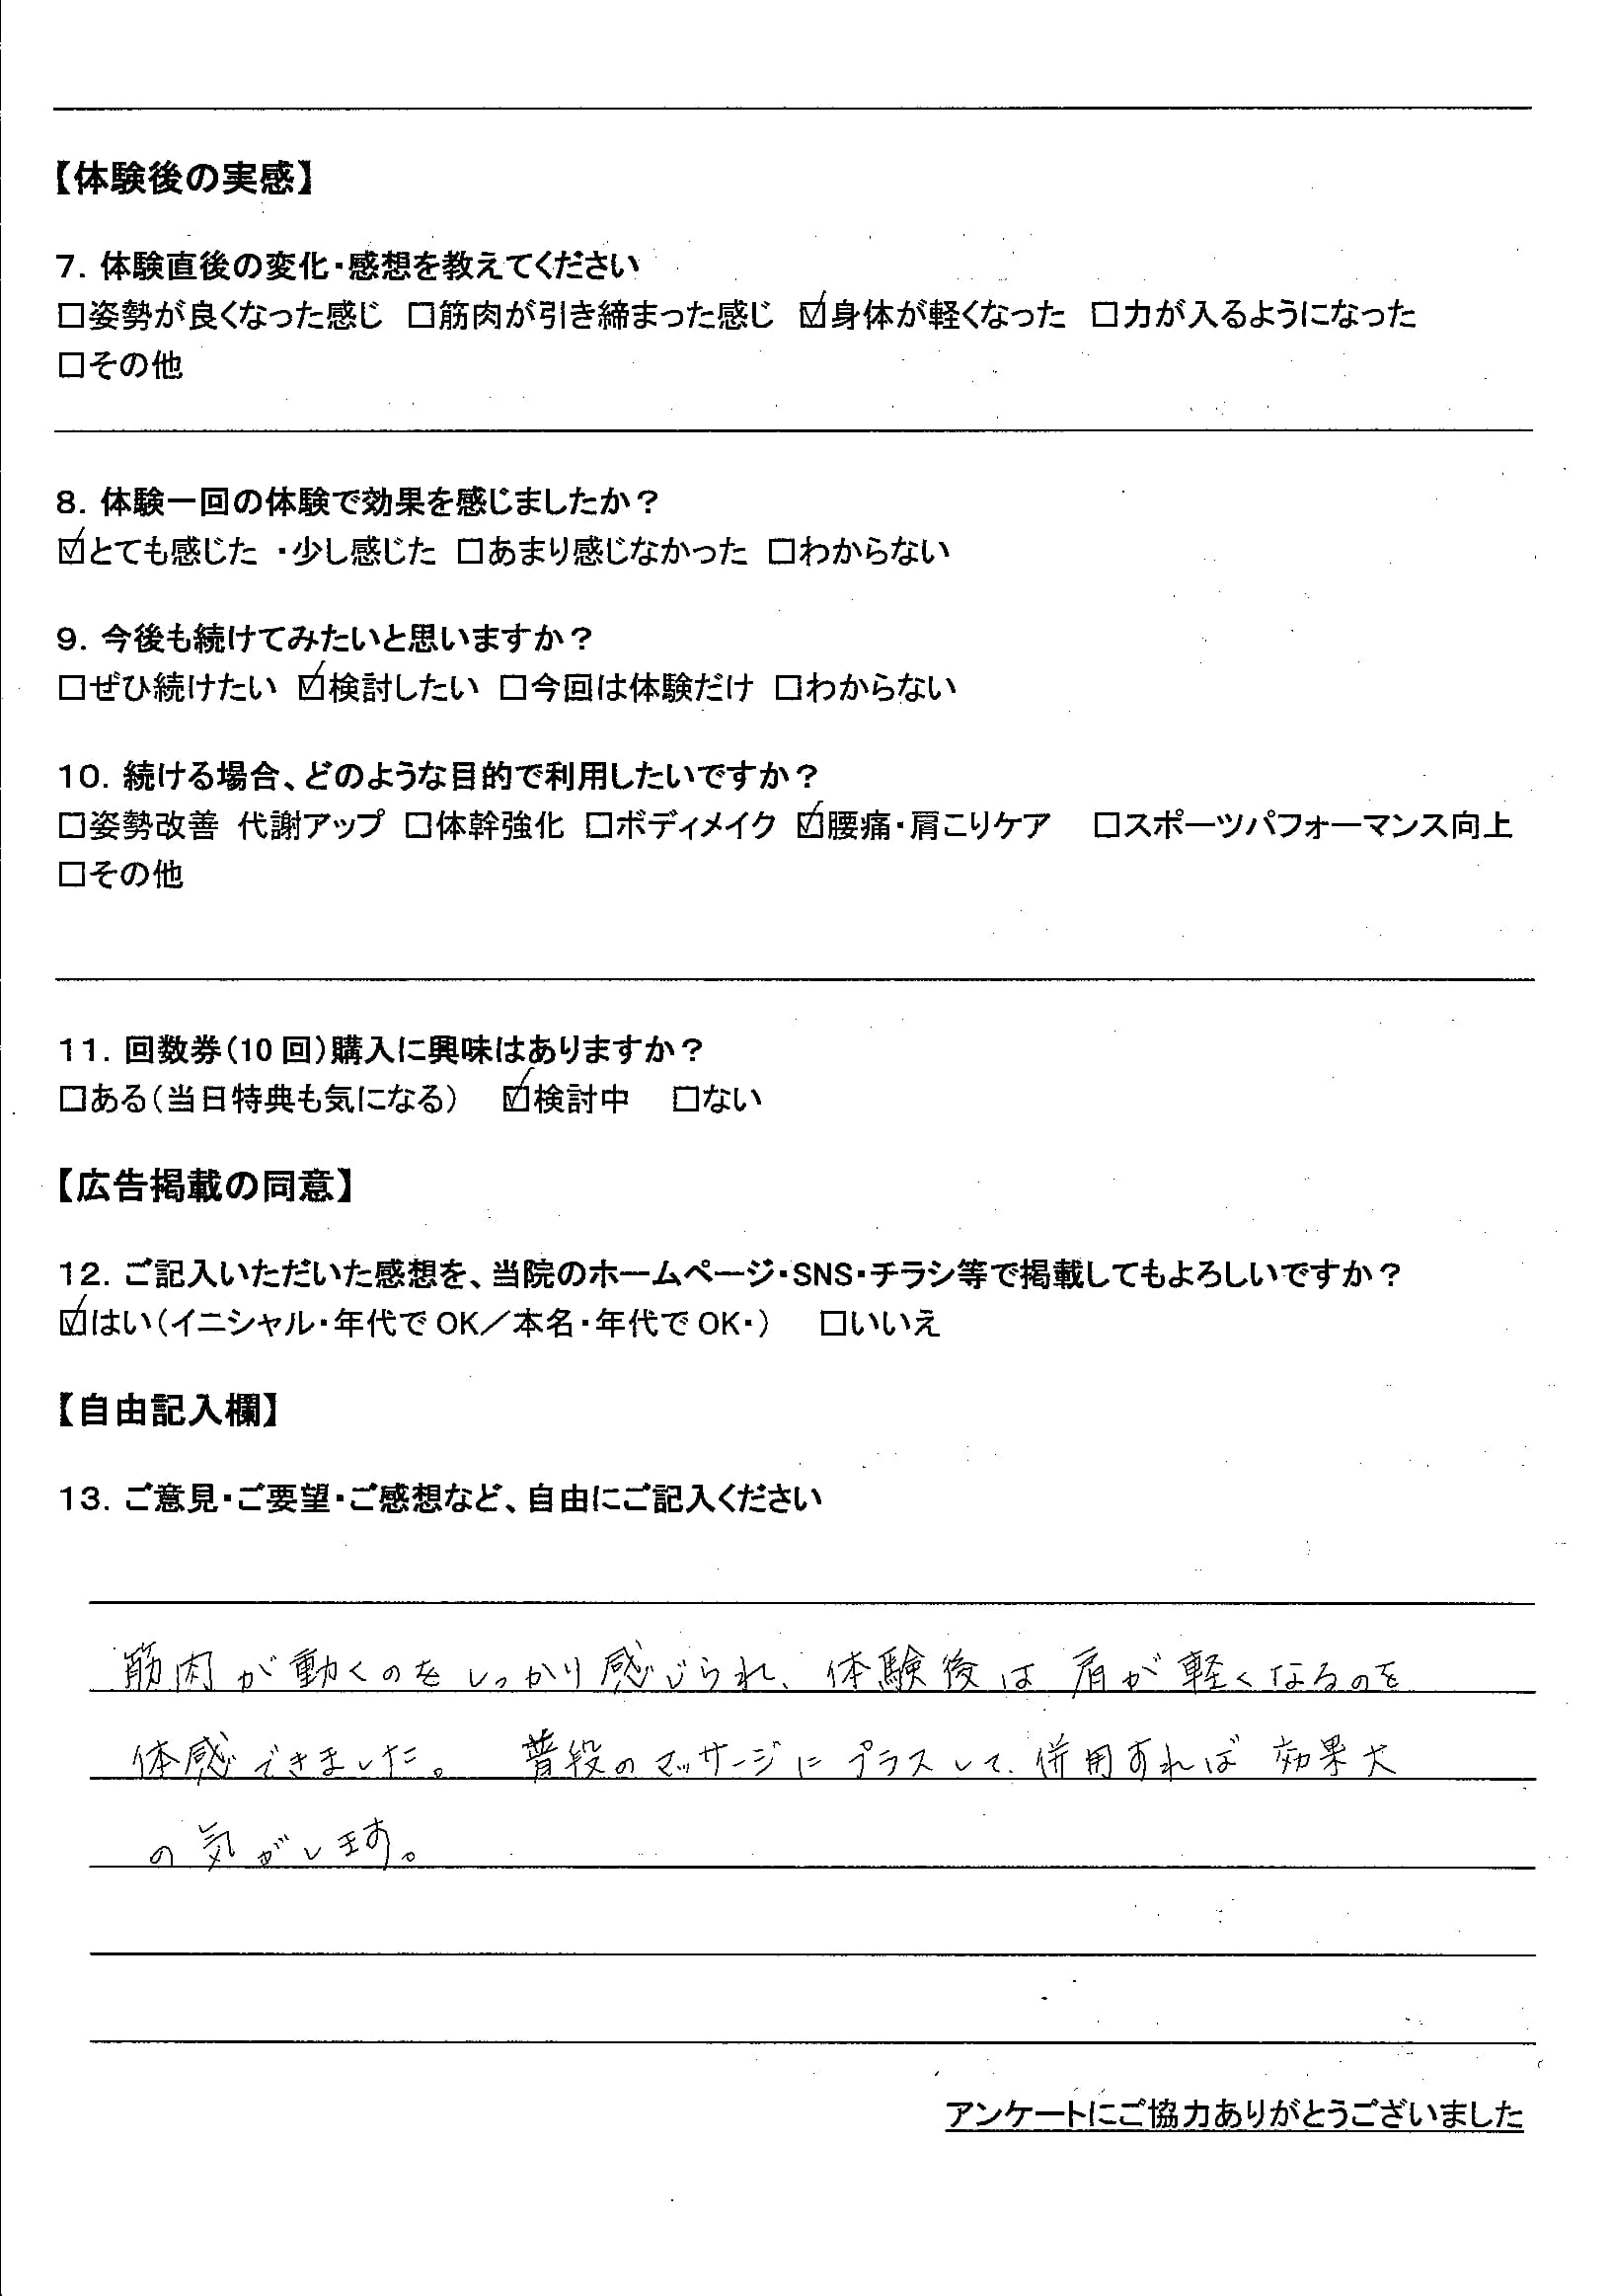 【体験後の実感】
7. 体験直後の変化・感想を教えてください
□姿勢が良くなった感じ □筋肉が引き締まった感じ ☑身体が軽くなった □力が入るようになった
□その他
8. 体験一回の体験で効果を感じましたか？
☑とても感じた ・少し感じた □あまり感じなかった □わからない
9. 今後も続けてみたいと思いますか？
□ぜひ続けたい ☑検討したい □今回は体験だけ □わからない
10. 続ける場合、どのような目的で利用したいですか？
□姿勢改善 代謝アップ □体幹強化 □ボディメイク ☑腰痛・肩こりケア □スポーツパフォーマンス向上
□その他
11. 回数券（10回）購入に興味はありますか？
□ある（当日特典も気になる） ☑検討中 □ない
【広告掲載の同意】
12. ご記入いただいた感想を、当院のホームページ・SNS・チラシ等で掲載してもよろしいですか？
☑はい（イニシャル・年代でOK／本名・年代でOK・） □いいえ
【自由記入欄】
13. ご意見・ご要望・ご感想など、自由にご記入ください
筋肉が動くのをしっかり感じられ、体験後は肩が軽くなるのを
体感できました。 普段のマッサージにプラスして、併用すれば効果大
の気がします。
アンケートにご協力ありがとうございました